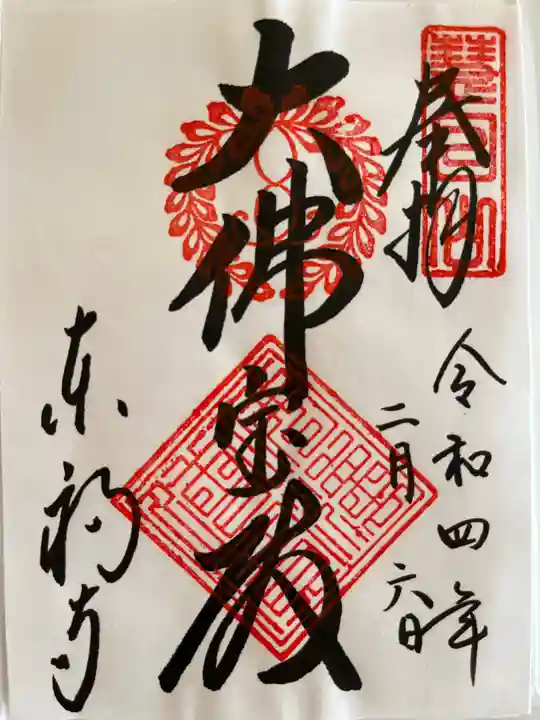 奉拝
令和四年
二月六日
大佛宝殿
東福寺
慧日山